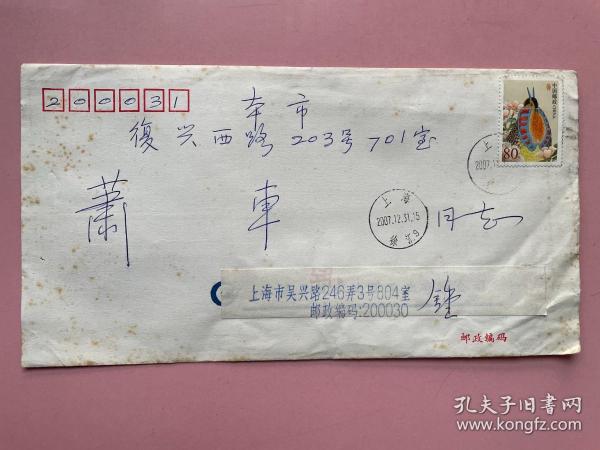 200031
本市
復兴西路203号701室
蕭車 同志
中国邮政 CHINA
80
上海
2007.12.31.15
上海市吴兴路246弄3号804室
邮政编码:200030
鍾
邮政编码
孔夫子旧书网
www.kongfz.com